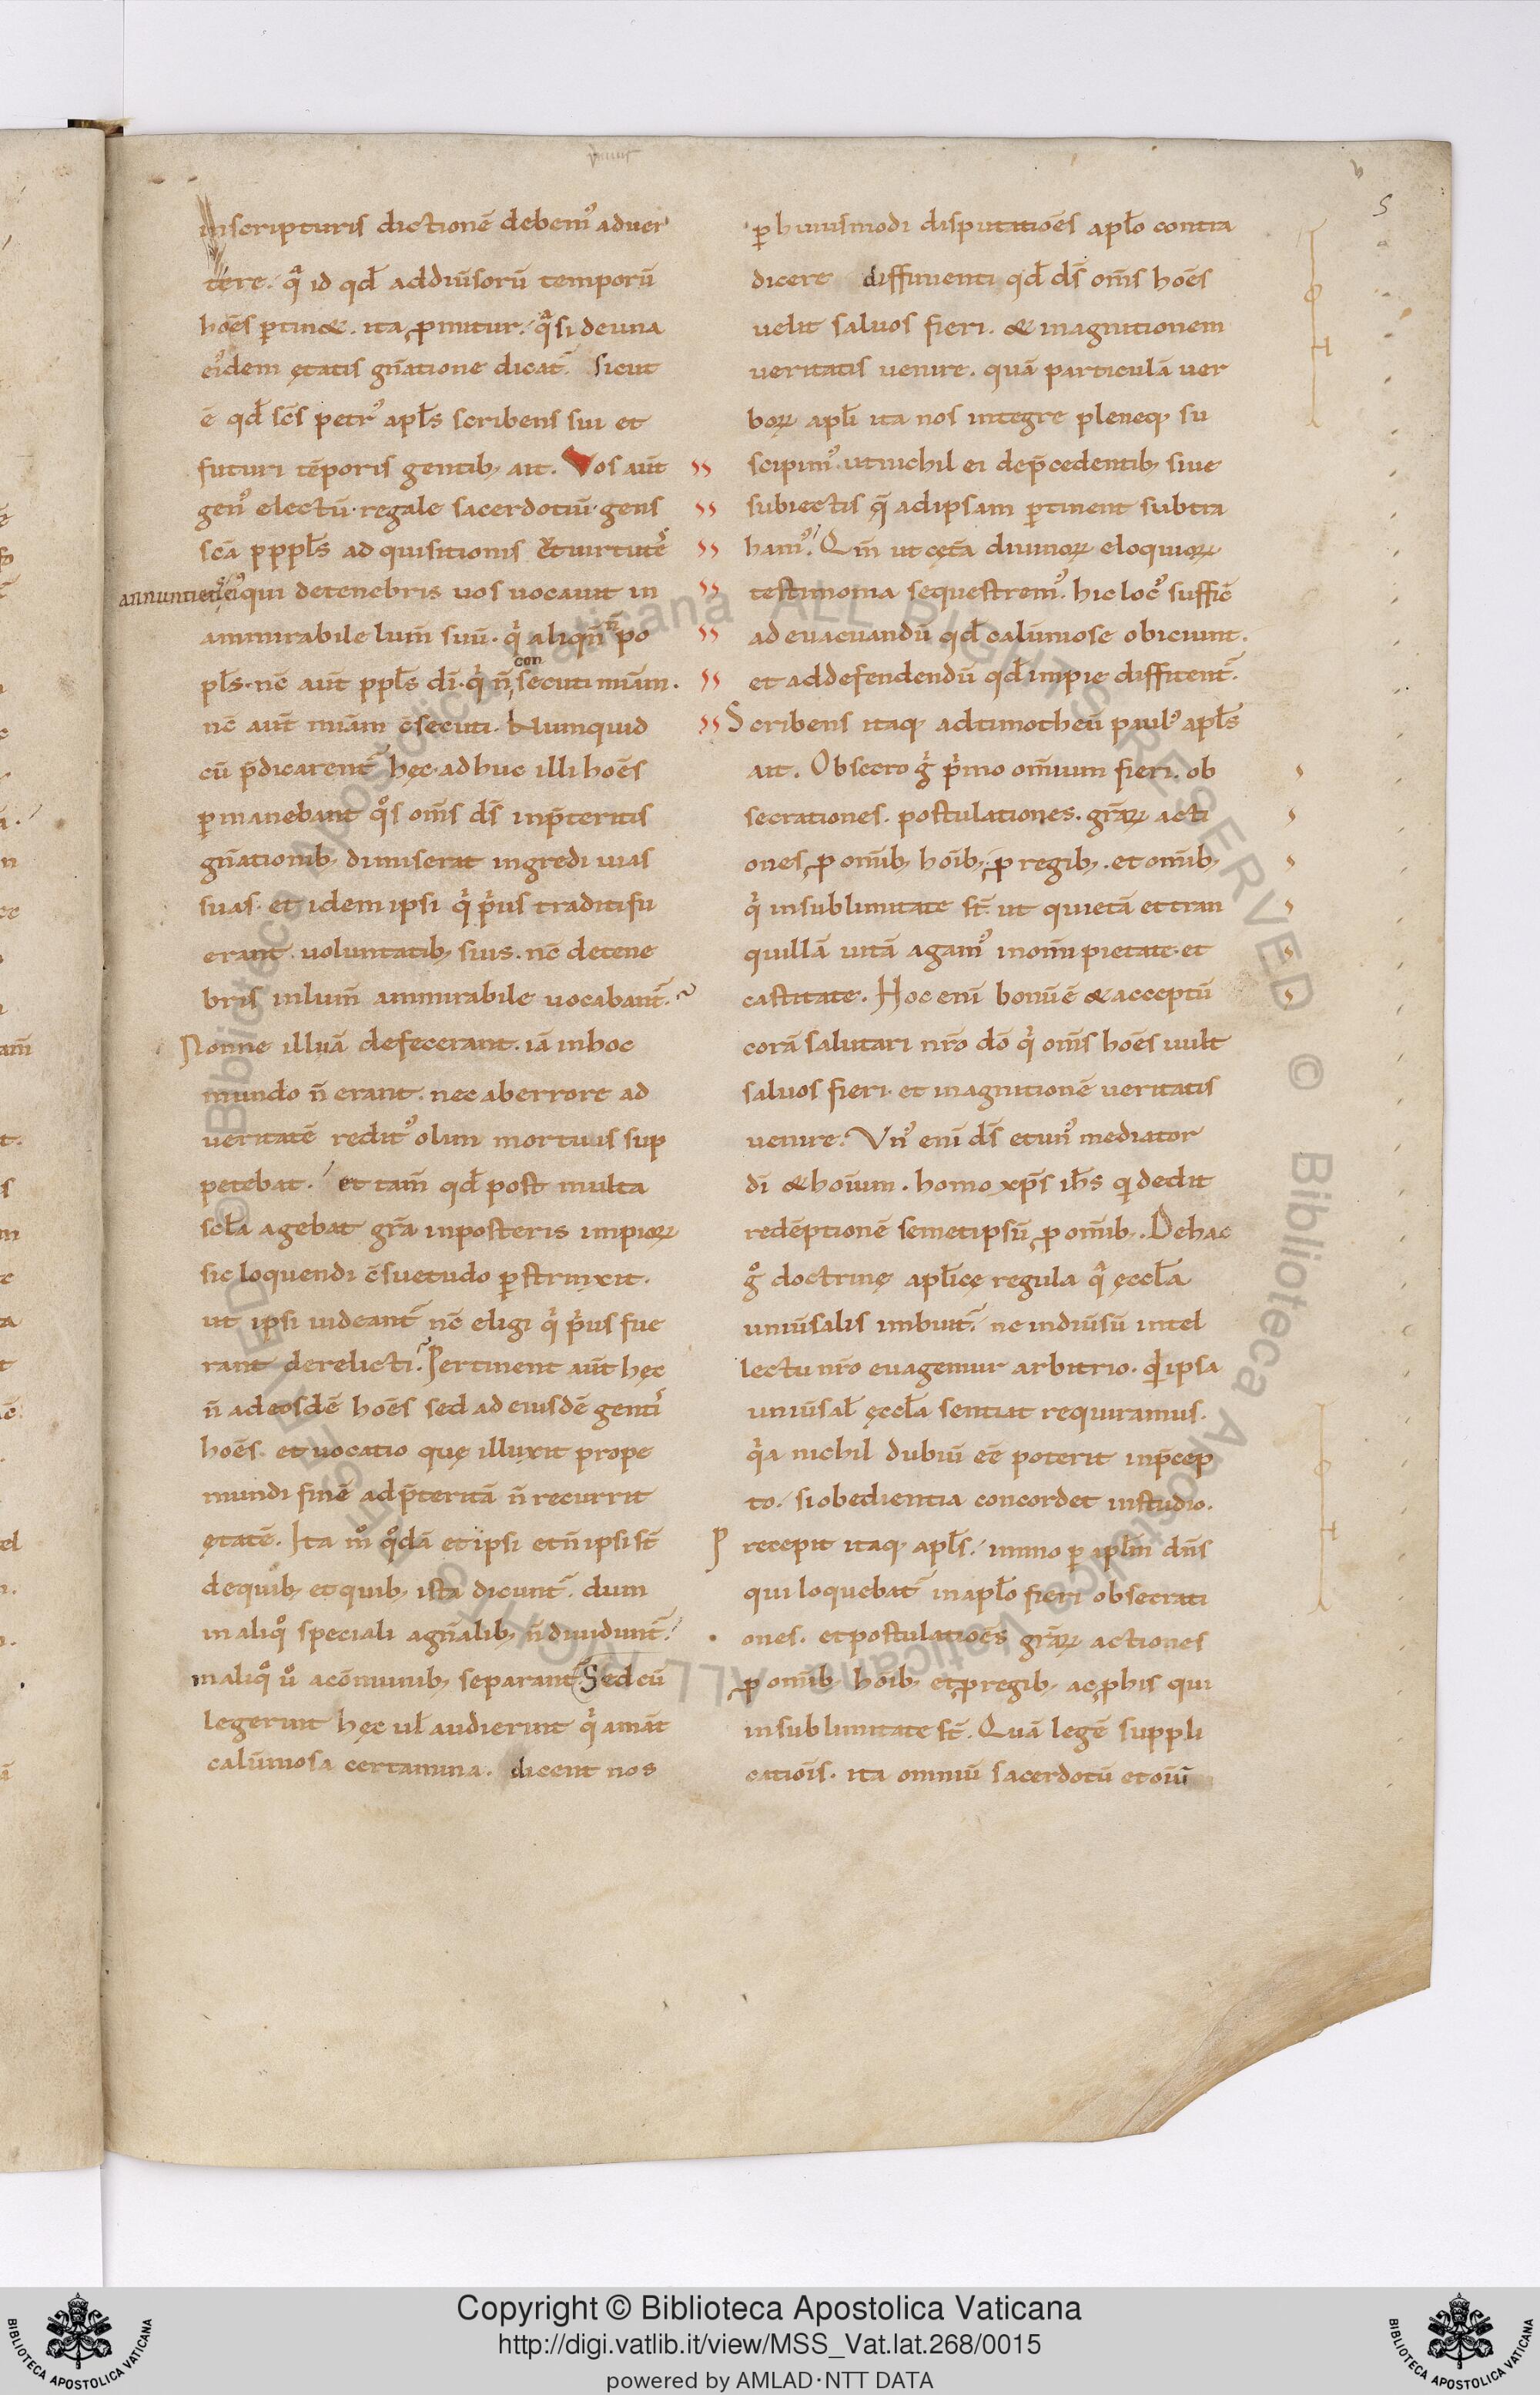 inscripturis dictionē debem᷒ aduer
tere. qͣ id qd̄ addiūsorū temporū
hoēs ꝑtin&. ita ꝓmitur. qͣsi deuna
ei᷒dem ętatis gn̄atione dicat᷑. Sicut
ē qd̄ scs̄ petr᷒ apłs scribens sui et
futuri tēporis gentib; ait. Vos aūt
gen᷒ electū. regale sacerdotiū. gens
scā pppłs ad quisitionis et uirtutē
annuntietis ei᷒ qui detenebris uos uocauit in
ammirabile lum̄ suū. qͥ aliqn̄ n̄ po
płs. nc̄ aūt ppłs dī. qͥ n̄ con secuti miām.
nc̄ aūt miām c̄secuti. Numquid
cū p̄dicarent᷑ hęc. adhuc illi hoēs
ꝑmanebant qͦs om̄s ds̄ inp̄teritis
gn̄ationib; dimiserat ingredi uias
suas. et idem ipsi qͥ pͥus traditi fu
erant uoluntatib; suis. nc̄ detene
bris inlum̄ ammirabile uocabant᷑.
Nonne illi iā defecerant. iā inhoc
mundo n̄ erant. nec aberrore ad
ueritatē redit᷒ olim mortuis sup
petebat. et tam̄ qd̄ post multa
scła agebat gr̄a inposteris impioꝝ
sic loquendi c̄suetudo ꝑstrinxit.
ut ipsi uideant᷑ nc̄ eligi qͥ pͥus fue
rant derelicti. Pertinent aūt hęc
n̄ adeosdē hoēs sed ad eiusdē genti᷒
hoēs. et uocatio quę illuxit prope
mundi finē adp̄teritā n̄ recurrit
ętatē. Ita mͦ qͦdā et ipsi et n̄ ipsi st̄
dequib; et quib; ista dicunt᷑. dum
in aliqͦ speciali agn̄alib; n̄ diuidunt᷑.
in aliqͦ uͦ acōmunib; separant᷑. Sed cū
legerint hęc uł audierint qͥ amāt
calūniosa certamina. dicent nos
ꝑ huiusmodi disputatioēs apło contra
dicere diffinienti qd̄ ds̄ om̄s hoēs
uelit saluos fieri. & inagnitionem
ueritatis uenire. quā particulā uer
boꝝ apłi ita nos integre pleneq; su
scipim᷒. ut nichil ei dep̄cedentib; siue
subiectis q̄ adipsam ꝑtinent subtra
ham᷒. Qm̄ ut cęt̄a diuinoꝝ eloquioꝝ
testimonia sequestrem᷒. hic loc᷒ sufficī
ad euacuandū qd̄ calūniose obiciunt.
et addefendendū qd̄ impie diffitent᷑.
Scribens itaq; adtimotheū paul᷒ apłs
ait. Obsecro gͥ pͥmo omīum fieri. ob
secrationes. postulationes. gr̄aꝝ acti
ones ꝓ omīb; hoīb; ꝓ regib;. et omīb;
qͥ insublimitate st̄. ut quietā et tran
quillā uitā agam᷒ inomī pietate. et
castitate. Hoc enī bonū ē & acceptū
corā salutari nr̄o dō qͥ om̄s hoēs uult
saluos fieri. et inagnitionē ueritatis
uenire. Vn᷒ enī ds̄ et un᷒ mediator
dī & hoīum. homo xp̄s ih̄s qͥ dedit
redēptionē semetipsū ꝓ omīb;. Dehac
gͦ doctrinę apłicę regula qͣ ęccła
uniūsalis imbuit᷑. ne indiūsū intel
lectu nr̄o euagemur arbitrio. qͥd ipsa
uniūsał ęccła sentiat requiramus.
qͥa nichil dubiū eē poterit inp̄cep
to. si obedientia concordet instudio.
P recepit itaq; apłs. immo ꝑ apłm dn̄s
qui loquebat᷑ in apło fieri obsecrati
ones. et postulatioēs gr̄aꝝ actiones
ꝓ omīb; hoīb; et ꝓ regib; ac ꝓ his qui
insublimitate st̄. Quā legē suppli
catioīs. ita omniū sacerdotū et oīū
Copyright © Biblioteca Apostolica Vaticana
http://digi.vatlib.it/view/MSS_Vat.lat.268/0015
powered by AMLAD·NTT DATA